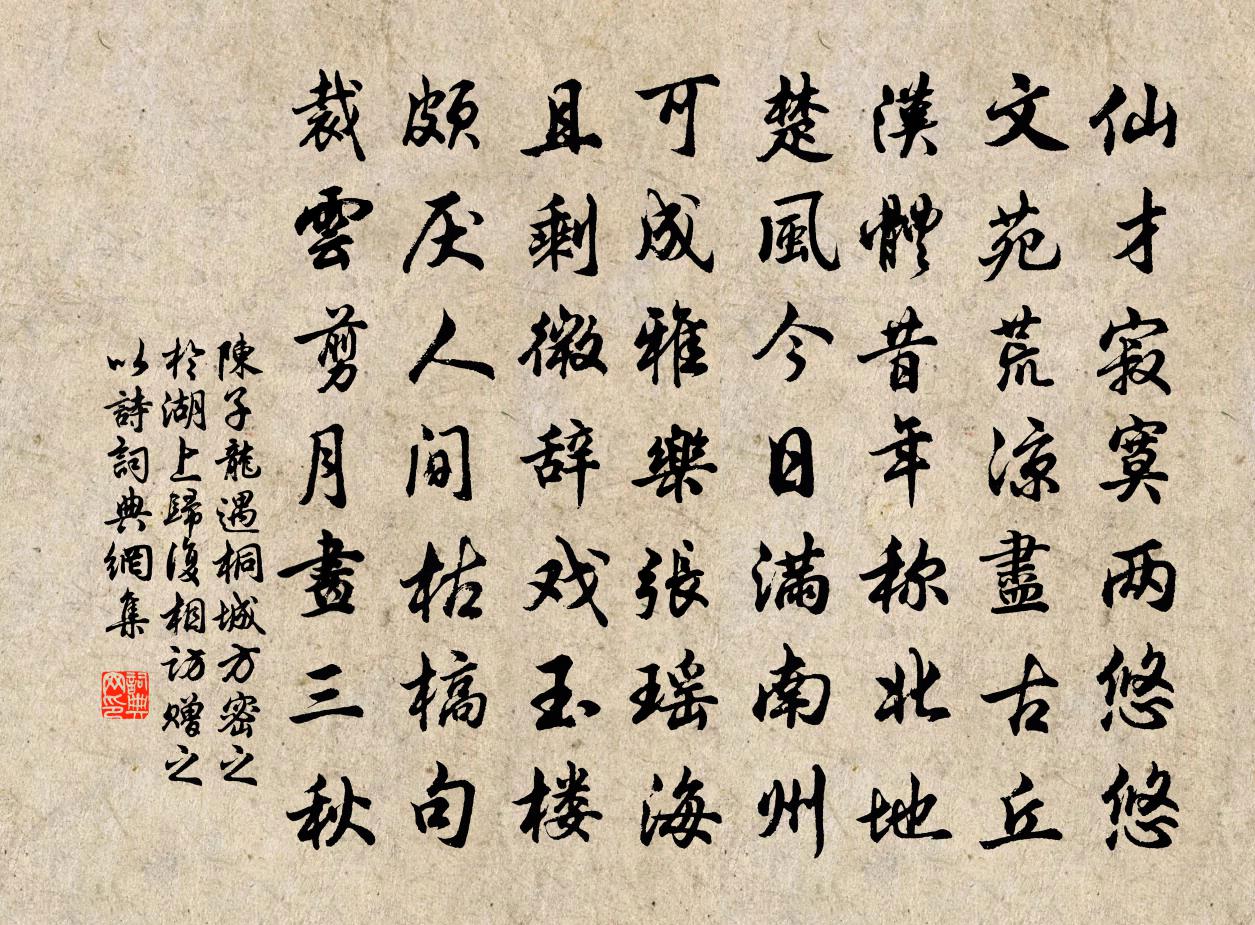 仙才寂寞两悠悠
文苑荒凉盡古丘
漢體昔年称北地
楚風今日满南州
可成雅樂張瑶海
且剩微辞戏玉楼
颇厌人间枯槁句
裁雲剪月畫三秋
陳子龍遇桐城方密之
於湖上歸復相訪赠之
以詩詞典網集
詞典
网印